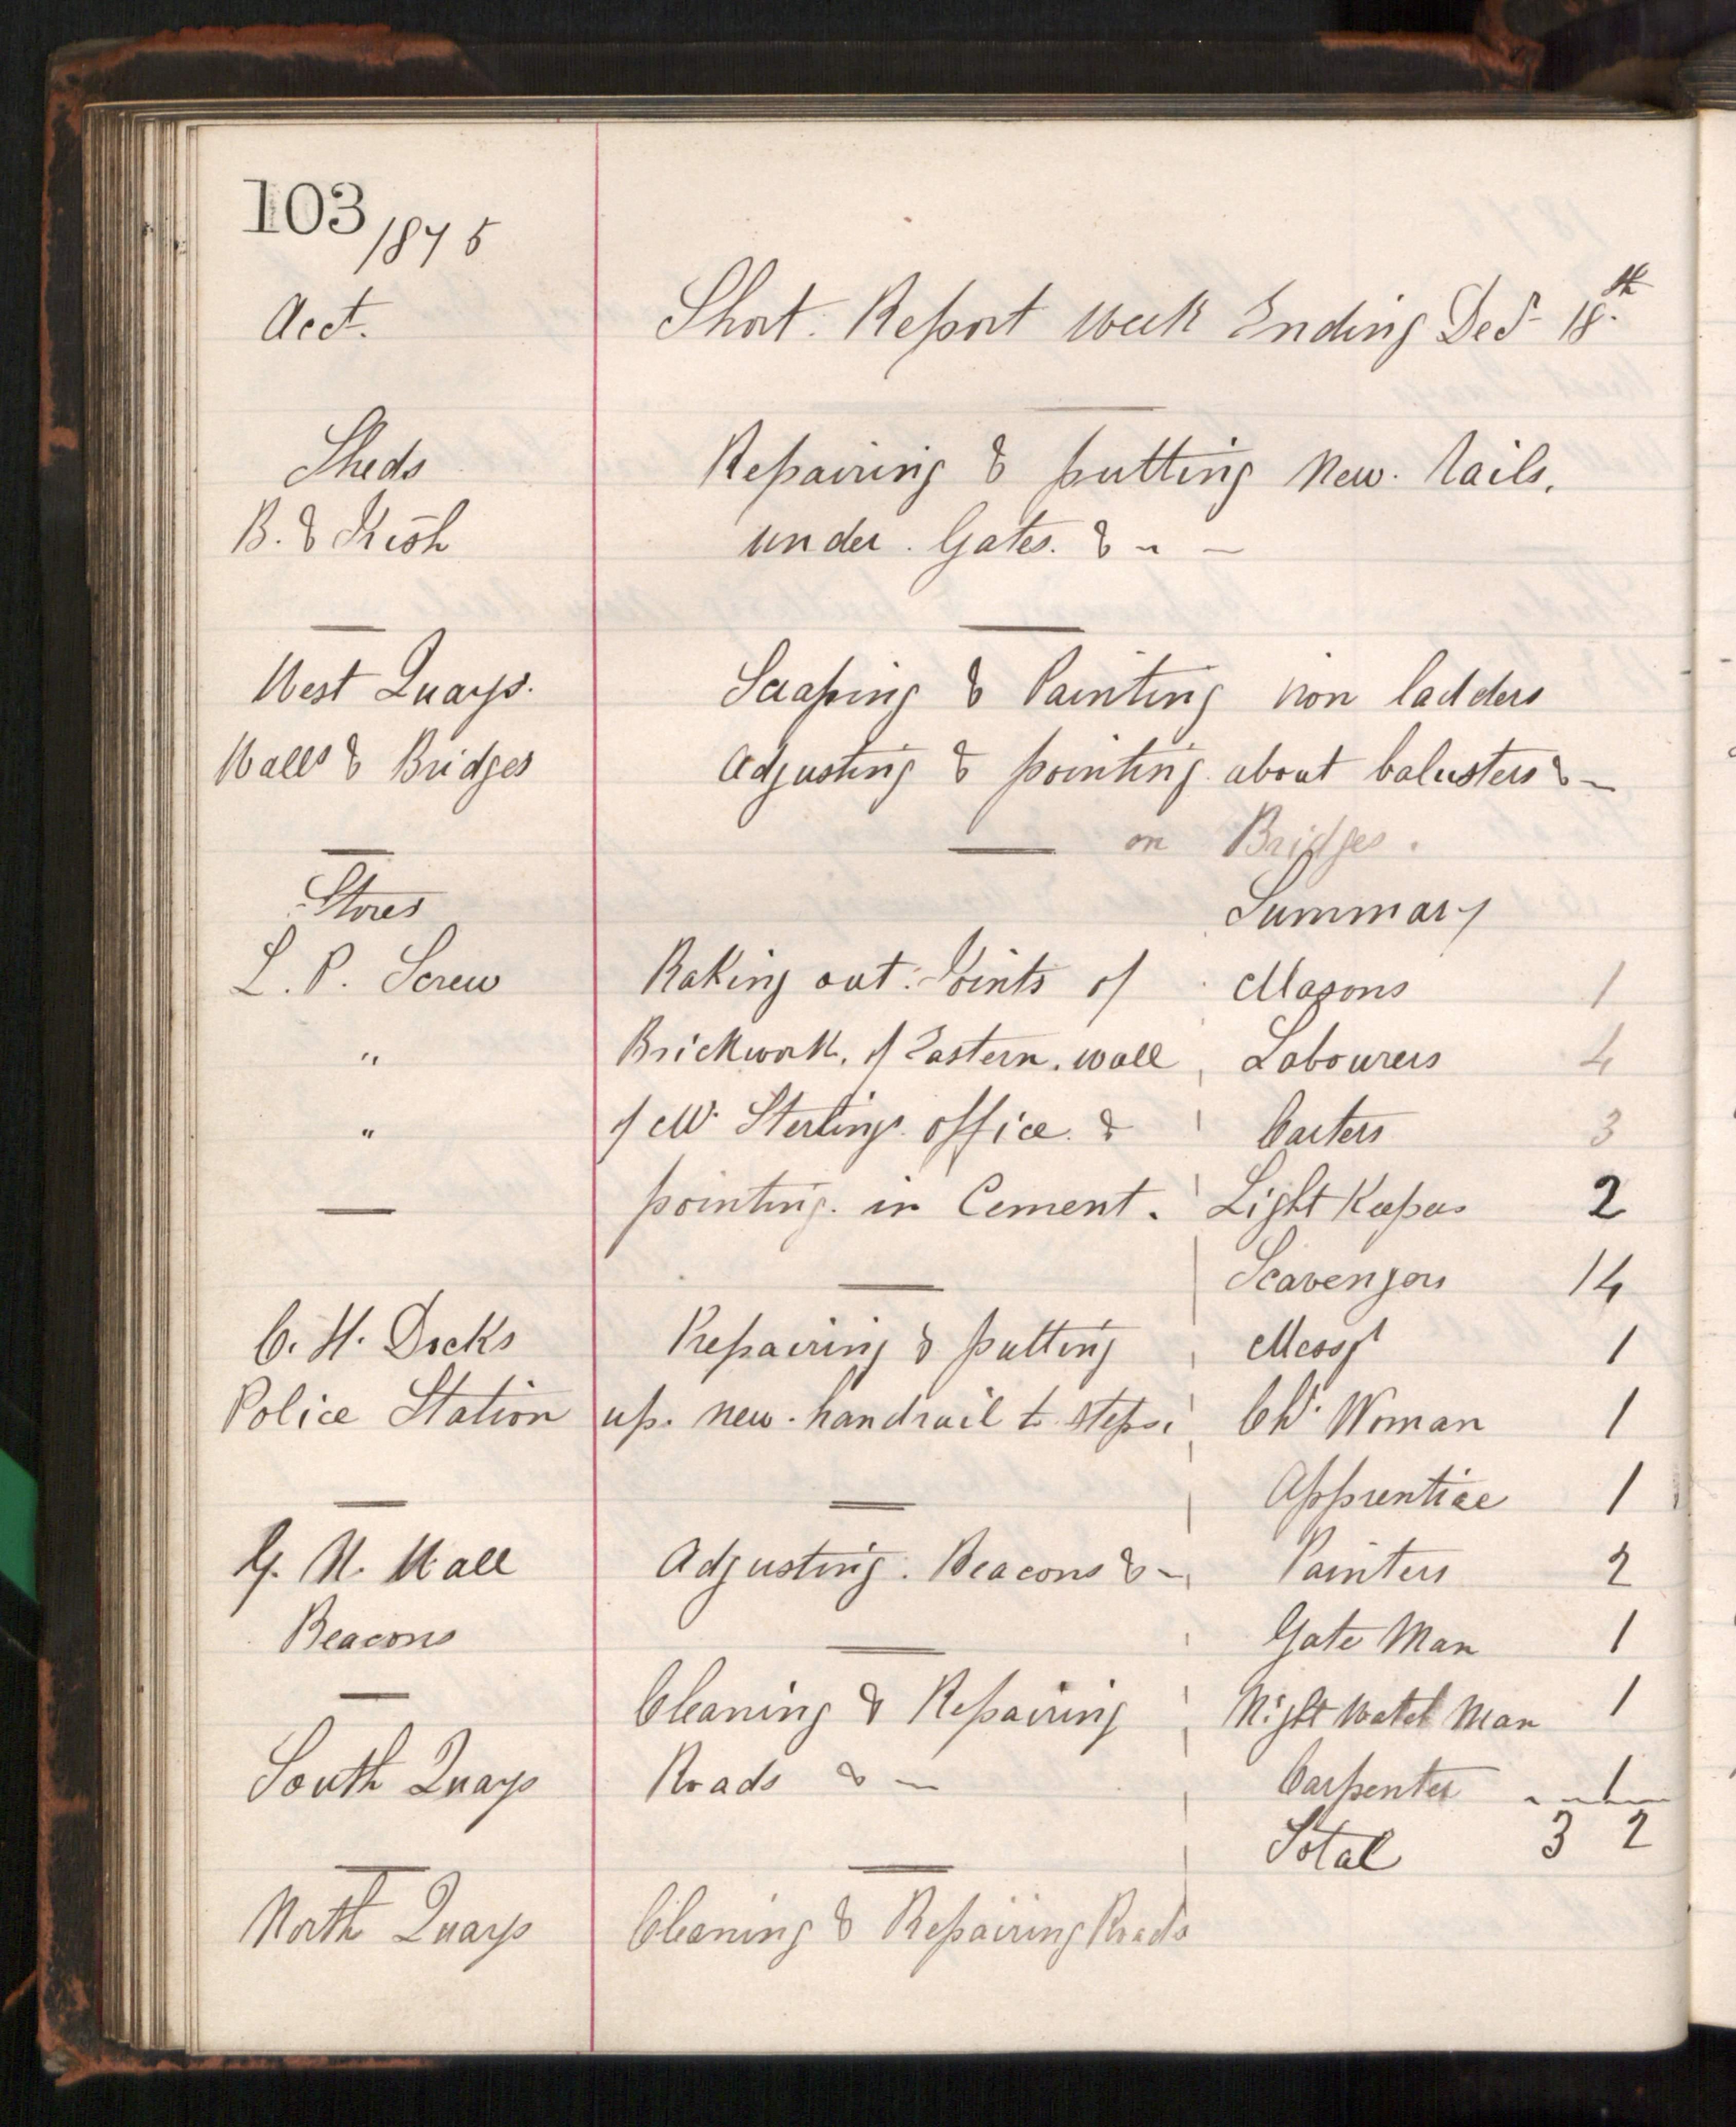 103
1875
Acct. Short Report Week Ending Decr 18th
Sheds Repairing & putting New Rails,
B. & Kish under Gates. & -
West Quays. Scraping & Painting iron ladders
Walls & Bridges Adjusting & pointing about balusters & -
on Bridges.
Stores Summary
L. P. Screw Raking out Joints of Masons 1
" Brickwork, of Eastern wall Labourers 4
" of Mr Sterlings office & Carters 3
pointing in Cement. Light Keepers 2
Scavengers 14
C. H. Docks Repairing & putting Messr 1
Police Station up new handrail to steps. Ch. Woman 1
Apprentice 1
G. N. Wall Adjusting Beacons & - Painters 2
Beacons Gate Man 1
Cleaning & Repairing Night Watch Man 1
South Quays Roads & - Carpenter 1
Total 32
North Quays Cleaning & Repairing Roads